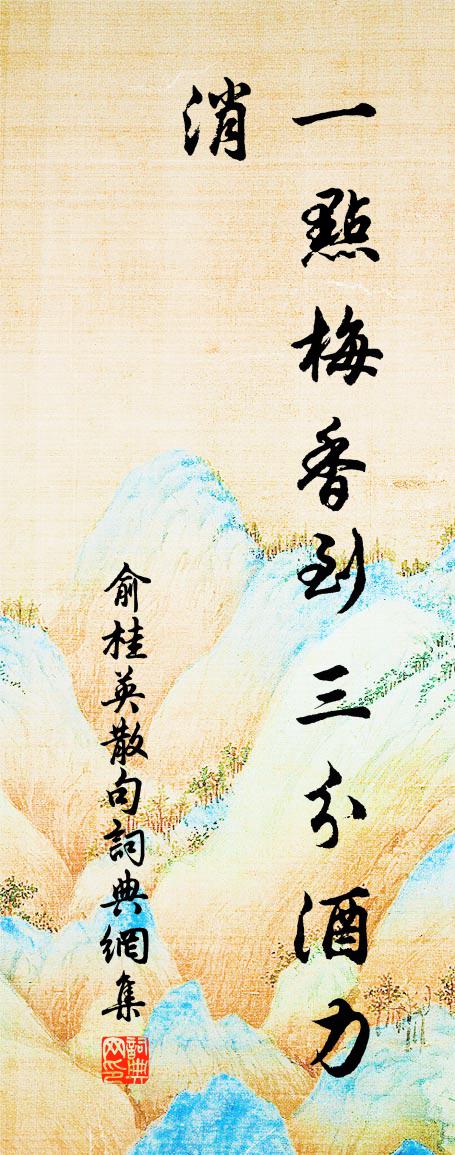 一點梅香到三分酒力
消
俞桂英散句詞典網集
詞典
网印